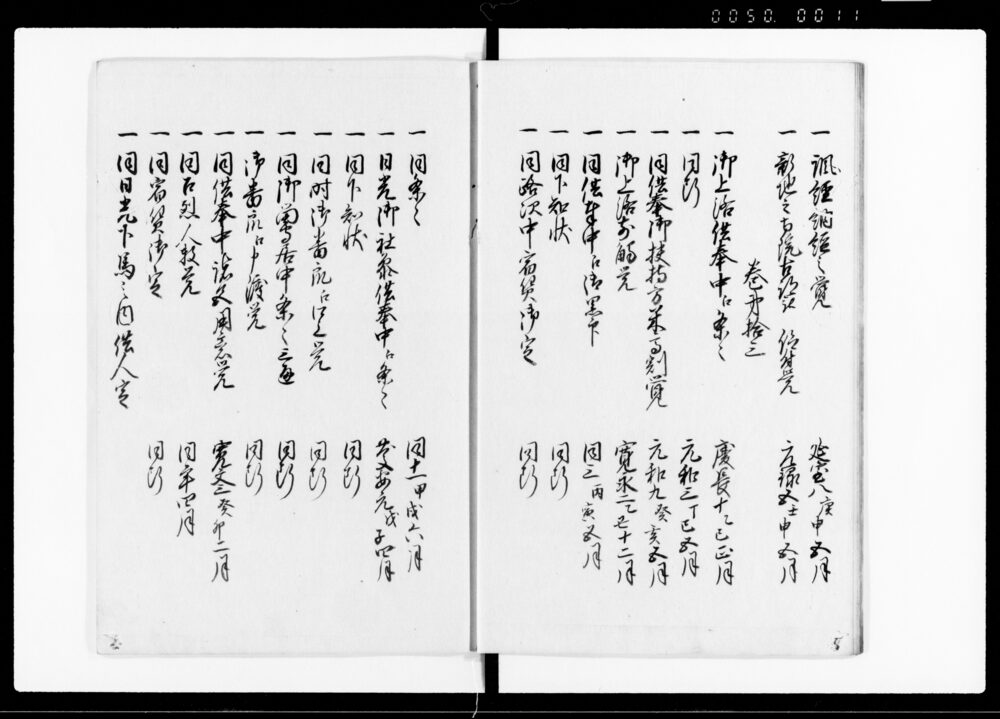 0050. 0011
一 諷経納経之覚 延宝八庚申五月
一 新地之寺院古跡 覚 元禄五壬申五月
巻第拾三
一 御上洛供奉中江条々 慶長十乙巳正月
一 同断 元和三丁巳五月
一 同供奉御扶持方米割覚 元和九癸亥五月
一 御上洛 触覚 寛永二乙丑十二月
一 同供奉中江御黒印 同三丙寅五月
一 同下知状 同断
一 同路次中宿賃御定 同断
一 同条々 同十一甲戌六月
一 日光御社参供奉中江条々 慶安元戊子四月
一 同下知状 同断
一 同時御番 江之覚 同断
一 同御留居中条々 三通 同断
一 御番 江申渡覚 同断
一 同供奉中諸 用 覚 寛文三癸卯二月
一 同召烈人数覚 同年四月
一 同宿賃御定 同断
一 同日光下馬之内供人定